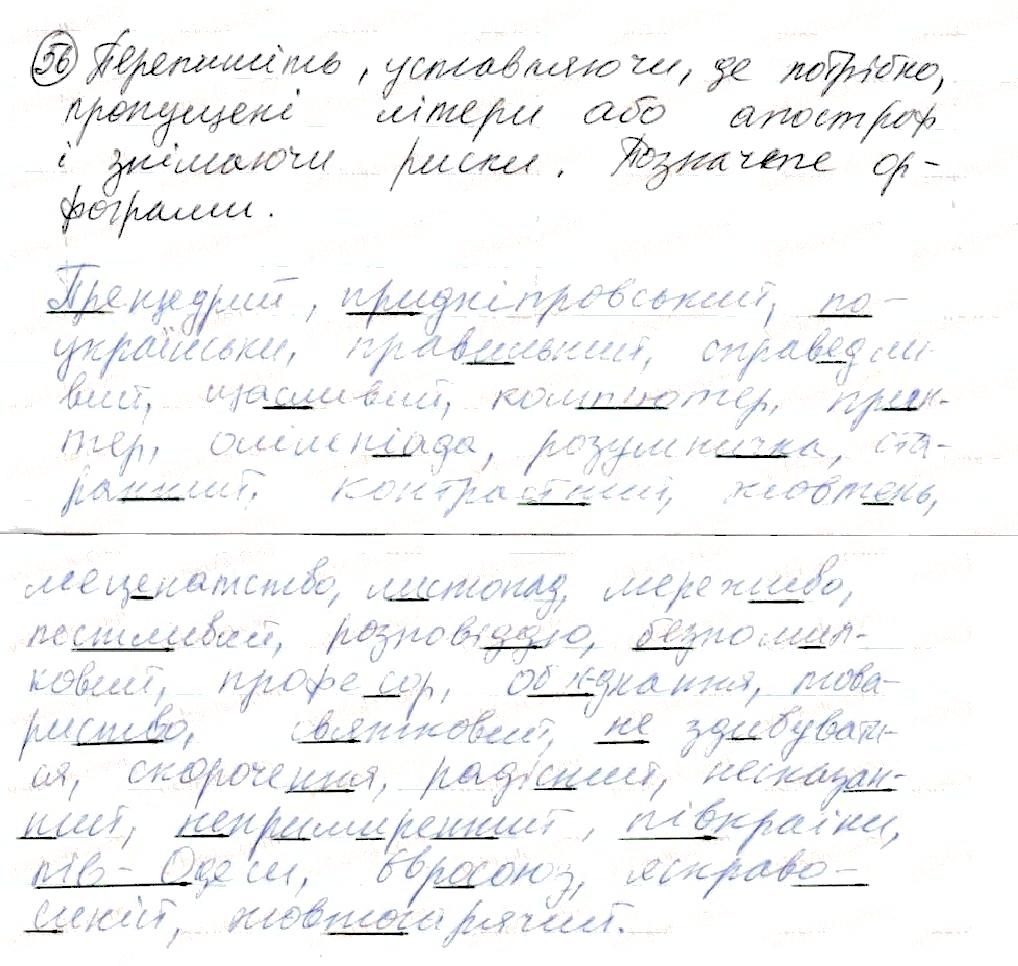 56 Перепишіть, уставляючи, де потрібно,
пропущені літери або апостроф
і знімаючи риски. Позначте ор-
фограми.
Прещедрий, придніпровський, по-
українськи, правильний, справедли-
вий, щасливий, комп'ютер, прин-
тер, олімпіада, розумничка, ста-
ранний, контрастний, жовтень,
меценатство, листопад, мереживо,
пестливий, розповіддю, безпомил-
ковий, професор, об'єднання, това-
риство, святковий, не здибувати-
ся, скорочення, радісний, несказан-
ний, непримиренний, півкраїни,
пів-Одеси, Євросоюз, яскраво-
синій, жовтогарячий.